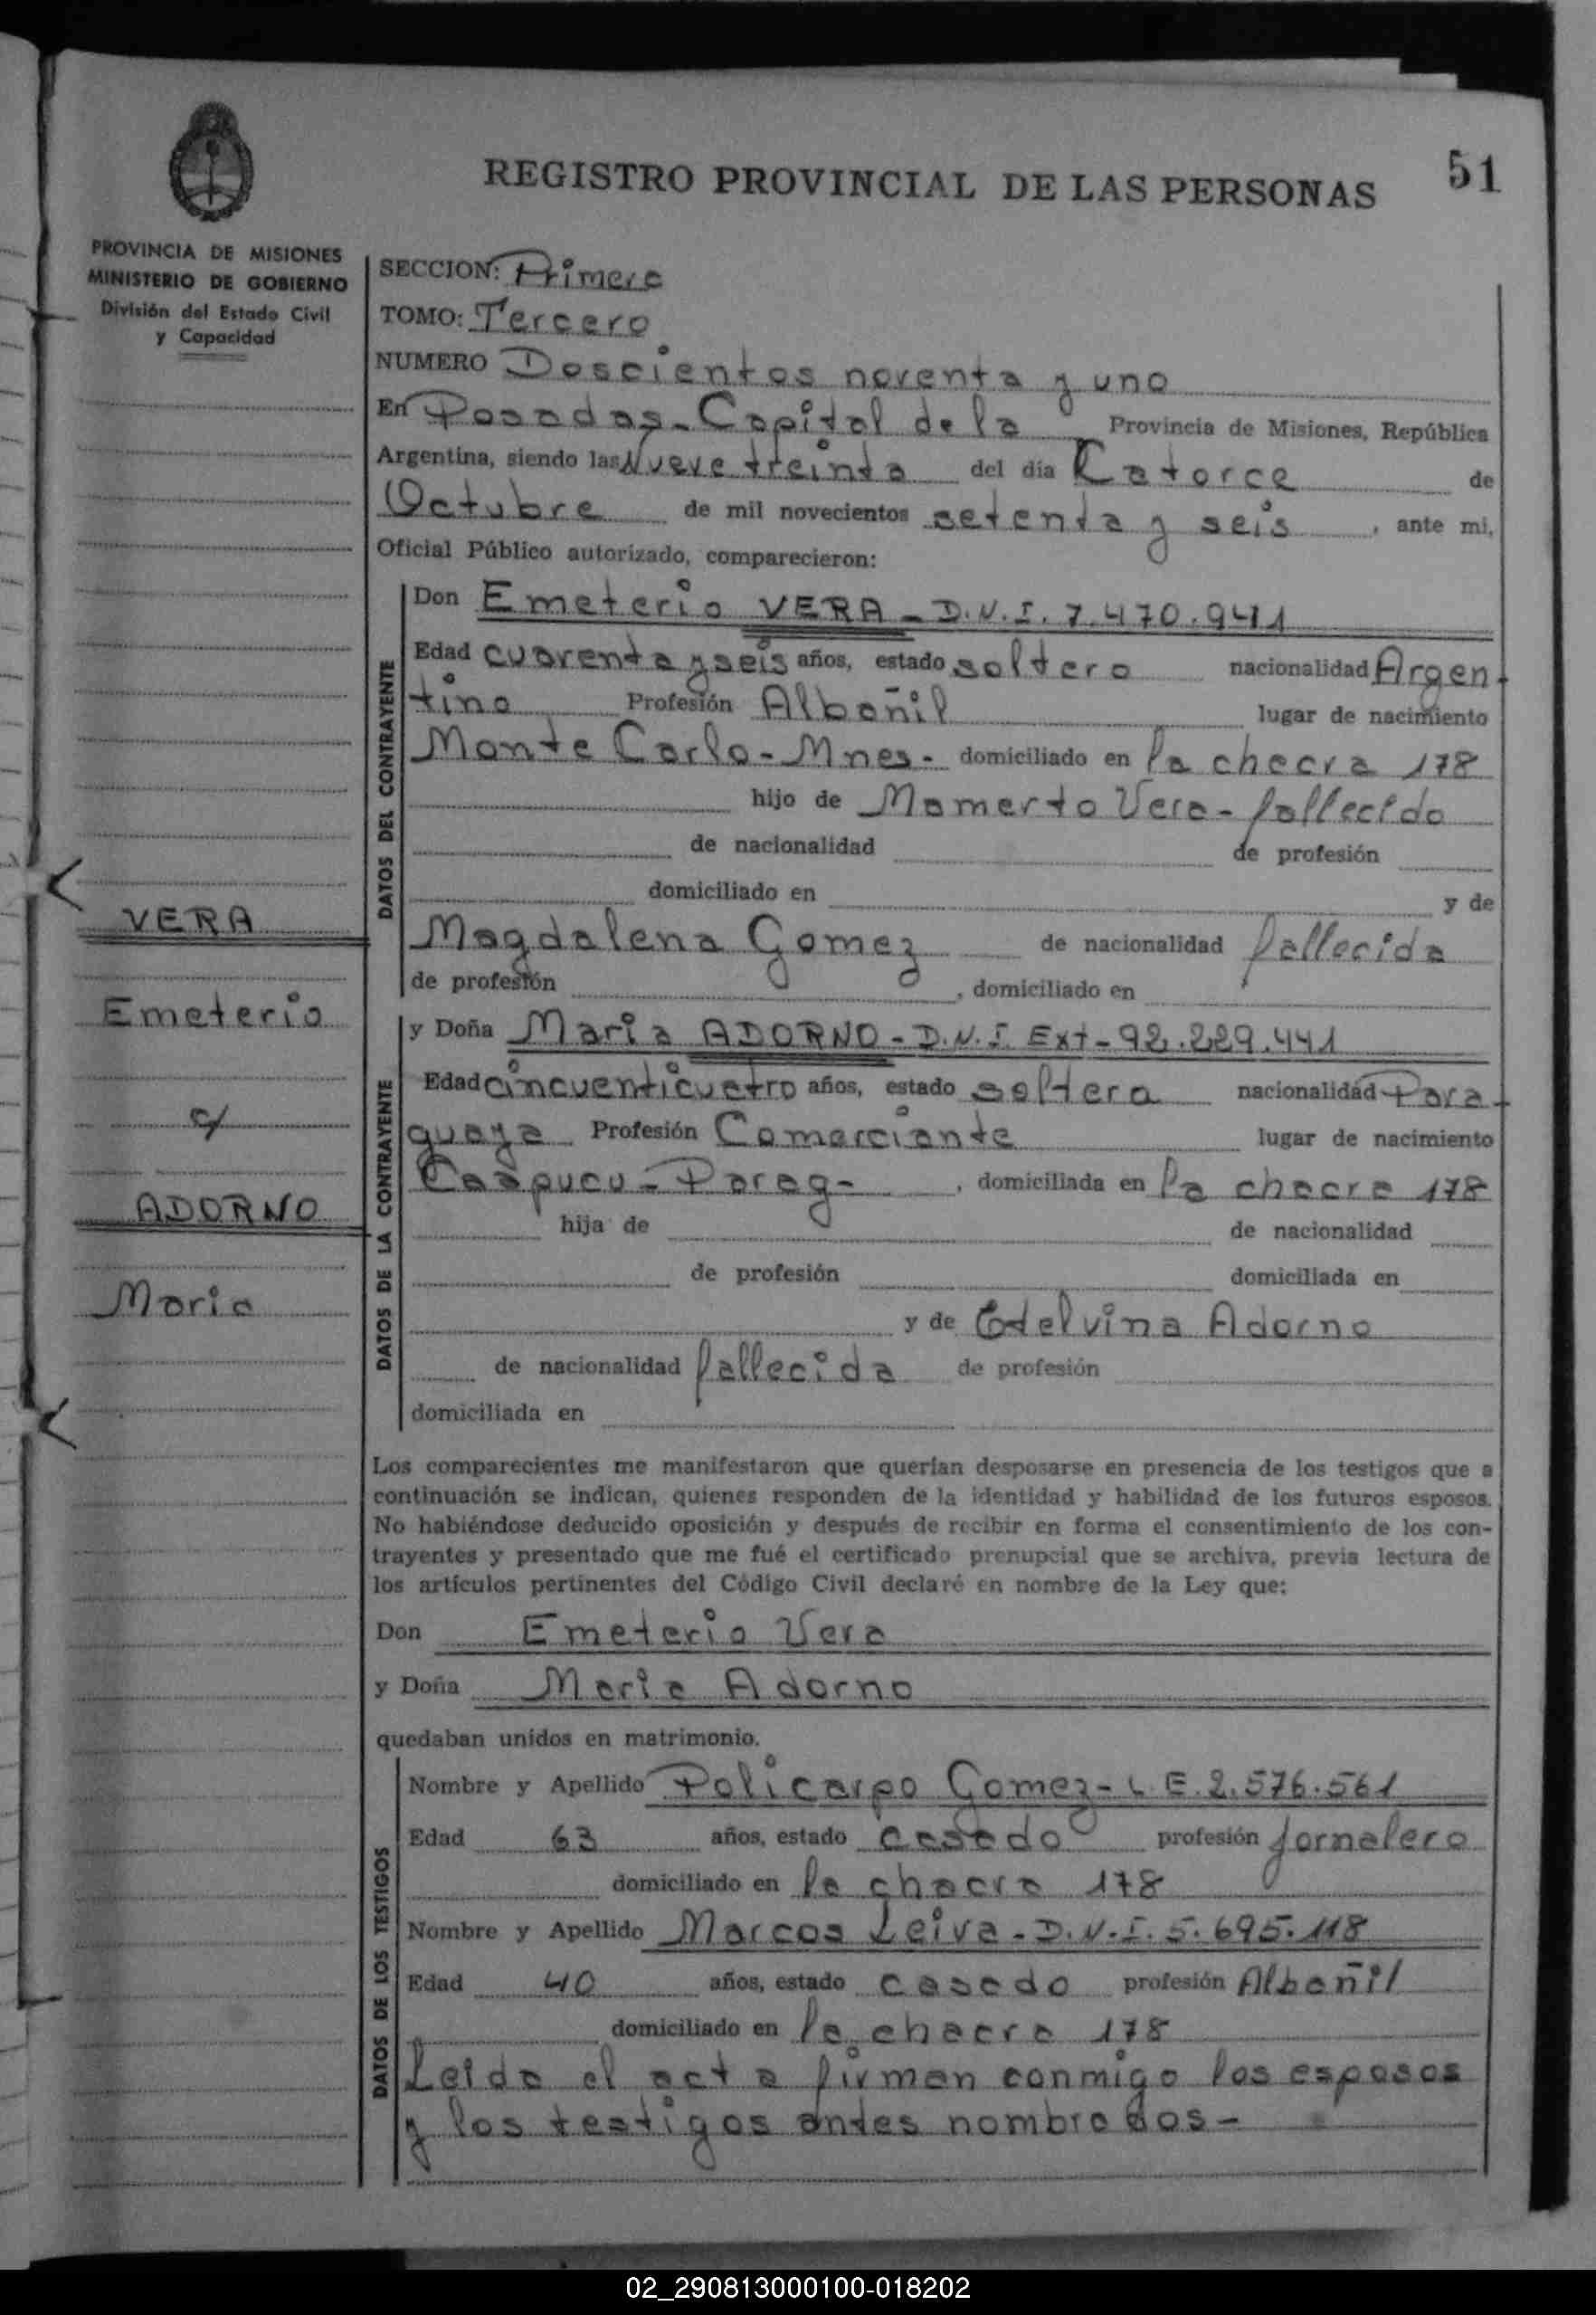 REGISTRO PROVINCIAL DE LAS PERSONAS
51
PROVINCIA DE MISIONES
MINISTERIO DE GOBIERNO
División del Estado Civil
y Capacidad
SECCION: Primera
TOMO: Tercero
NUMERO Doscientos noventa y uno
En Posadas - Capital de la Provincia de Misiones, República
Argentina, siendo las Nueve treinta del día Catorce de
Octubre de mil novecientos setenta y seis, ante mi,
Oficial Público autorizado, comparecieron:
DATOS DEL CONTRAYENTE
Don Emeterio VERA - D.N.I. 7.470.941
Edad cuarenta y seis años, estado soltero nacionalidad Argen-
tino Profesión Albañil lugar de nacimiento
Monte Carlo - Mnes - domiciliado en la chacra 178
hijo de Mamerto Vera - fallecido
de nacionalidad de profesión
domiciliado en y de
Magdalena Gomez de nacionalidad fallecida
de profesión , domiciliado en
VERA
Emeterio
c/
ADORNO
Maria
DATOS DE LA CONTRAYENTE
y Doña Maria ADORNO - D.N.I. Ext - 92.229.441
Edad cincuenticuatro años, estado soltera nacionalidad Para-
guaya Profesión Comerciante lugar de nacimiento
Caapucu - Parag - , domiciliada en la chacra 178
hija de de nacionalidad
de profesión domiciliada en
y de Edelvina Adorno
de nacionalidad fallecida de profesión
domiciliada en
Los comparecientes me manifestaron que querían desposarse en presencia de los testigos que a
continuación se indican, quienes responden de la identidad y habilidad de los futuros esposos.
No habiéndose deducido oposición y después de recibir en forma el consentimiento de los con-
trayentes y presentado que me fué el certificado prenupcial que se archiva, previa lectura de
los artículos pertinentes del Código Civil declaré en nombre de la Ley que:
Don Emeterio Vera
y Doña Maria Adorno
quedaban unidos en matrimonio.
DATOS DE LOS TESTIGOS
Nombre y Apellido Policarpo Gomez - L.E. 2.576.561
Edad 63 años, estado casado profesión jornalero
domiciliado en la chacra 178
Nombre y Apellido Marcos Leiva - D.N.I. 5.695.118
Edad 40 años, estado casado profesión Albañil
domiciliado en la chacra 178
Leida el acta firman conmigo los esposos
y los testigos antes nombrados -
02_290813000100-018202